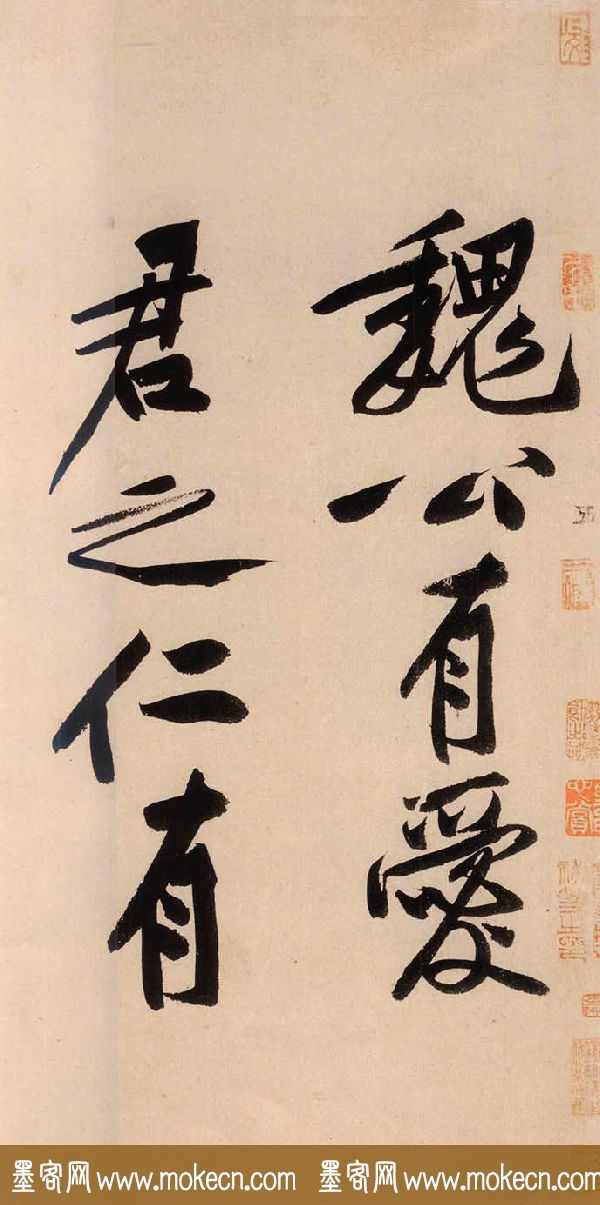 魏公有愛
君之仁有
墨客网 www.mokecn.com 墨客网 www.mokecn.com